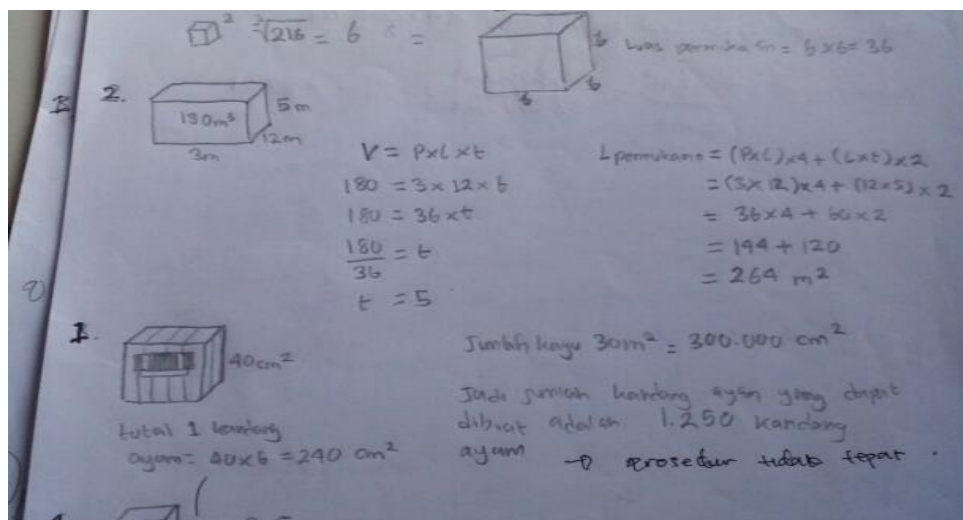 2 ∛216 = 6 =
6
6
6
Luas permukaan = 6x6 = 36
B 2.
180m³
5m
12m
3m
V = PxLxt
180 = 3 x 12 x t
180 = 36 x t
180/36 = t
t = 5
L permukaan = (PxL)x4 + (Lxt)x2
= (3x12)x4 + (12x5)x2
= 36x4 + 60x2
= 144 + 120
= 264 m²
1.
40cm²
total 1 kandang
ayam = 40x6 = 240 cm²
Jumlah kayu 30m² = 300.000 cm²
Jadi jumlah kandang ayam yang dapat
dibuat adalah 1.250 kandang
ayam → prosedur tidak tepat.